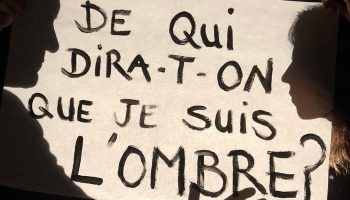 DE QUI
DIRA-T-ON
QUE JE SUIS
L'OMBRE?